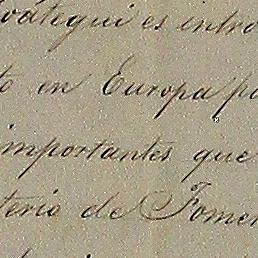 vátegui es intro
to en Europa po
importantes que
terio de Fomen